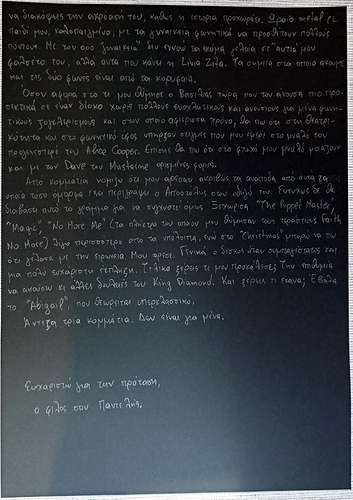 να διακόψεις την ακρόασή του, καθώς η ιστορία προχωράει. Ωραίο metal ρε
παιδί μου, καλοπαιγμένο, με τα γυναικεία φωνητικά να προσθέτουν πολλούς
πόντους. Με τον όρο "γυναικεία" δεν εννοώ τα ακόμα γελοία σε αυτιά μου
φαλσέτο του, αλλά αυτά που κάνει η Livia Zita. Τα σημεία στα οποία ακούμε
και τις δύο φωνές είναι από τα κορυφαία.
Όσον αφορά στο τι μου θύμησε ο Βασιλιάς τώρα που τον άκουσα πιο προ-
σεκτικά σε έναν δίσκο χωρίς πολλούς ενοχλητικούς και ανούσιους για μένα φωνη-
τικούς τσχελιρισμούς και στον οποίο αφιέρωσα χρόνο, θα πω ότι στη θεατρι-
κότητα και στο φωνητικό ύφος υπήρξαν στιγμές που μου έφερε στο μυαλό τον
προγενέστερό του Alice Cooper. Επίσης θα πω ότι στο φτωχό μου μυαλό μοιάζουν
και με τον Dave τον Mustaine ορισμένες φορές.
Από κομμάτια νομίζω ότι μου άρεσαν ακριβώς τα ανάποδα από αυτά
οποία τόσο όμορφα έχει περιγράψει ο Αποστόλης στον οδηγό του. Ευτυχώς δε θα
διαβάσει αυτό το γράμμα για να συγχυστεί όμως. Ξεχώρισα "The Puppet Master",
"Magic", "No More Me" (τα πλήκτρα του οποίου μου θύμησαν τους τεράστιους Faith
No More) λίγο περισσότερο από τα υπόλοιπα, ενώ στο "Christmas" μπορώ να πω
ότι γέλασα με την ειρωνεία. Μου άρεσε. Γενικά ο δίσκος ήταν συμπαθέστατος και
μια πολύ ευχάριστη έκπληξη. Τελικά ξέρεις τι μου προκάλεσες; Την επιθυμία
να ακούσω κι άλλες δουλειές του King Diamond. Και ξέρεις τι έκανα; Έβαλα
το "Abigail", που θεωρείται υπερκλασσικό.
Άντεξα τρία κομμάτια. Δεν είναι για μένα.
Ευχαριστώ για την πρόταση,
ο φίλος σου Παντελής.